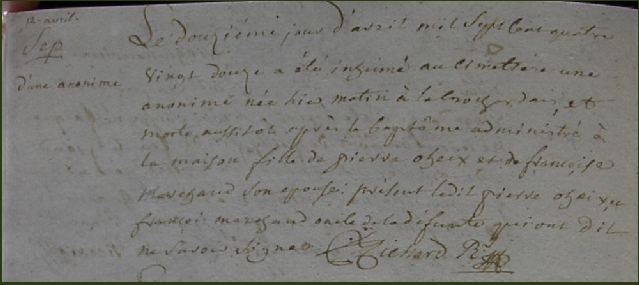 12 avril.
Sep
d'une anonime
Le douziéme jour d'avril mil sept cent quatre
vingt douze a été inhumé au cimetiére une
anonime née hier matin à la
morte aussitôt après le baptôme administré à
la maison fille de pierre oheix et de françoise
marchand son epouse: présent ledit pierre oheix et
françois marchand oncle de la défunte qui ont dit
ne savoir signer